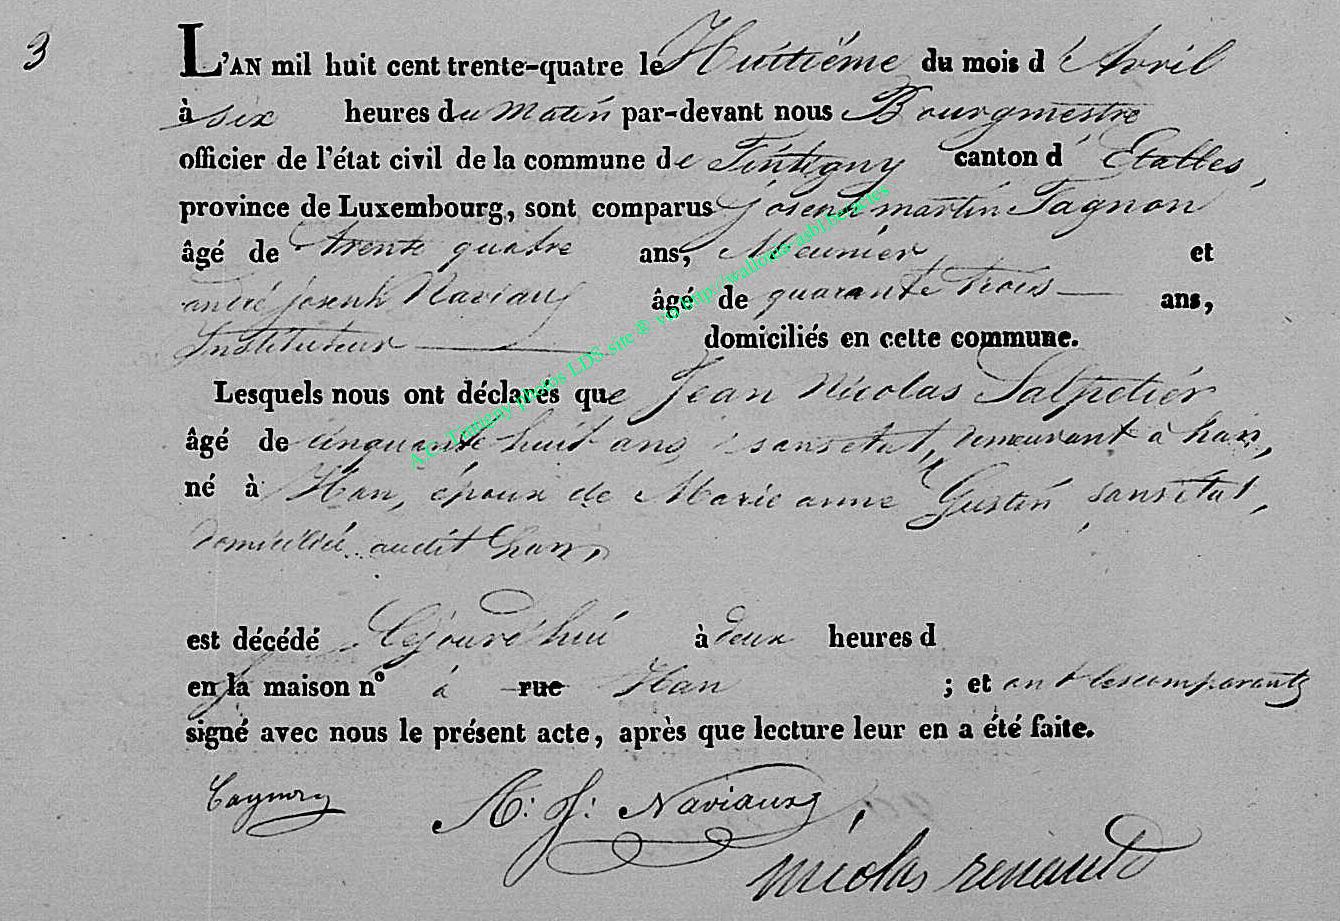 3
L'AN mil huit cent trente-quatre le Huitiéme du mois d'Avril
à six heures du matin par-devant nous Bourgmestre
officier de l'état civil de la commune de Tintigny canton d'Etalles,
province de Luxembourg, sont comparus Joseph martin Tagnon
âgé de trente quatre ans, Meunier et
andré joseph Naviaux âgé de quarante trois ans,
Instituteur domiciliés en cette commune.
Lesquels nous ont déclarés que Jean Nicolas Salpetier
âgé de cinquante huit ans, sans etat, demeurant à han,
né à Han, époux de Marie anne Gustin sans etat,
domiciliée audit han,
est décédé Cejourd'hui à deux heures d
en la maison n° à rue Han ; et ont les comparants
signé avec nous le présent acte, après que lecture leur en a été faite.
Tagnon
A: J: Naviaux
nicolas renauld
A.C. Tintigny photos LDS site ® via http://wallonia-asbl.be/actes